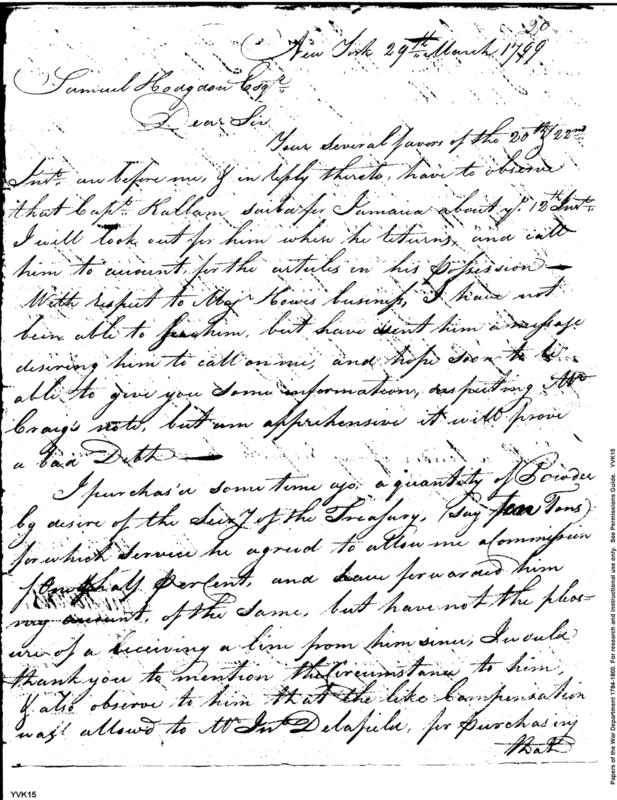 20
New York 29th March 1799
Samuel Hodgdon Esqr
Dear Sir
Your several favors of the 20th & 22nd
Inst. are before me, & in reply thereto, have to observe
that Capt. Kallam saild for Jamaica about ye. 12th Inst.
I will look out for him when he returns, and call
him to account, for the articles in his possession —
With respect to Majr Howes business, I have not
been able to see him, but have sent him a message
desiring him to call on me, and hope soon to be
able to give you some information, respecting Mr
Craigs note, but am apprehensive it will prove
a bad Debt —
I purchas'd some time ago, a quantity of Powder
by desire of the Secy of the Treasury, (say ten Tons)
for which service he agreed to allow me a Commission
of One & half per Cent, and have forwarded him
my account, of the same, but have not the pleas-
ure of a receiving a line from him since, I would
thank you to mention the Circumstance to him,
& also observe to him that the like Compensation
was allowed to Mr Jno Delafield, for purchasing
that
Papers of the War Department 1784-1800. For research and instructional use only. See Permissions Guide. YVK15
YVK15